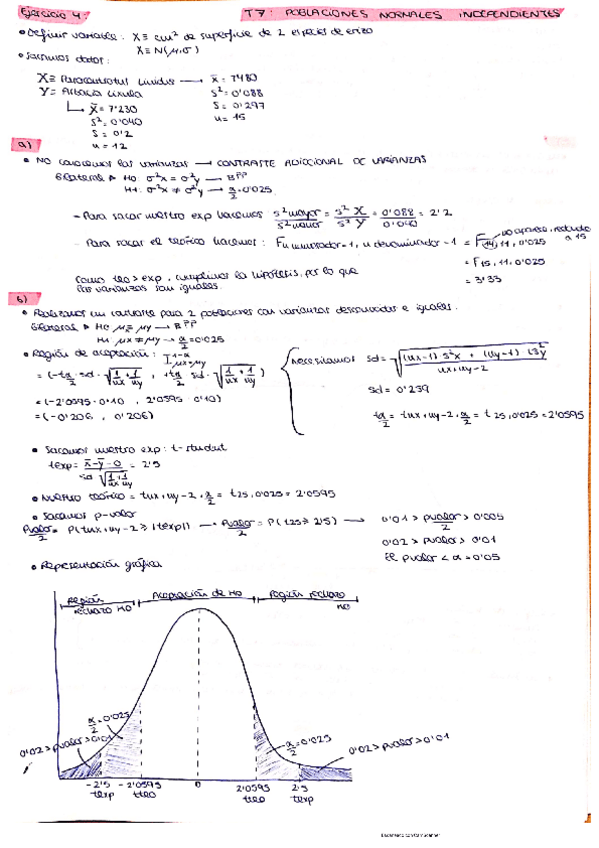 Ejercicio 4: T7: POBLACIONES NORMALES INDEPENDIENTES
• Definir variable: X ≡ cm² de superficie de 2 especies de erizo
X ≡ N(μ,σ)
• Sacamos datos:
X ≡ Paracentrotus Lividus → x̄ = 7'480
Y = Arbacia Lixula s² = 0'088
↳ x̄ = 7'230 s = 0'297
s² = 0'040 n = 15
s = 0'2
n = 12
a)
• NO conocemos las varianzas → CONTRASTE ADICIONAL DE VARIANZAS
Bilateral ▸ H0 σ²x = σ²y → BPP
H1: σ²x ≠ σ²y → α/2 = 0'025
- Para sacar nuestro exp hacemos s² mayor / s² menor = s² X / s² Y = 0'088 / 0'040 = 2'2
- Para sacar el teórico hacemos: F n numerador-1, n denominador-1 = F 14, 11, 0'025 no aparece, redondeo a 15
= F 15, 11, 0'025
= 3'33
Como teo > exp, cumplimos la hipótesis, por lo que
las varianzas son iguales.
b)
• Realizamos un contraste para 2 poblaciones con varianzas desconocidas e iguales.
Bilateral ▸ H0 μx = μy → BPP
H1 μx ≠ μy → α/2 = 0'025
• Región de aceptación: I 1-α μx=μy
= (-tα/2 · sd · √(1/nx + 1/ny) , + tα/2 sd · √(1/nx + 1/ny))
= (-2'0595 · 0'10 , 2'0595 · 0'10)
= (-0'206 , 0'206)
necesitamos sd = √((nx-1) s²x + (ny-1) s²y / nx+ny-2)
sd = 0'239
tα/2 = t nx+ny-2, α/2 = t 25, 0'025 = 2'0595
• Sacamos nuestro exp: t-student
texp = x̄-ȳ-0 / sd √(1/nx + 1/ny) = 2'5
• Nuestro teórico = t nx+ny-2, α/2 = t 25, 0'025 = 2'0595
• Sacamos p-valor
Pvalor/2 = P(t nx+ny-2 ≥ |texp|) → Pvalor/2 = P(t25 ≥ 2'5) → 0'01 > pvalor/2 > 0'005
0'02 > pvalor > 0'01
El pvalor < α = 0'05
• Representación gráfica
Región rechazo H0 Aceptación de H0 Región rechazo H0
α/2 = 0'025
0'02 > pvalor > 0'01
α/2 = 0'025
0'02 > pvalor > 0'01
-2'5 -2'0595 0 2'0595 2'5
texp tteo tteo texp
Escaneado con CamScanner